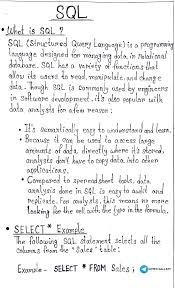 SQL
• What is SQL ?
SQL (Structured Query Language) is a programming
language designed for managing data in relational
database. SQL has a variety of functions that
allow its users to read, manipulate, and change
data. Though SQL is commonly used by engineers
in software development, it's also popular with
data analysts for a few reason:
• It's semantically easy to understand and learn.
• Because it can be used to access large
amounts of data directly where it's stored,
analysts don't have to copy data into other
applications.
• Compared to spreadsheet tools, data
analysis done in SQL is easy to audit and
replicate. For analysts, this means no more
looking for the cell with the typo in the formula.
• SELECT * Example
The following SQL statement selects all the
columns from the "Sales" table:
Example - SELECT * FROM Sales ;